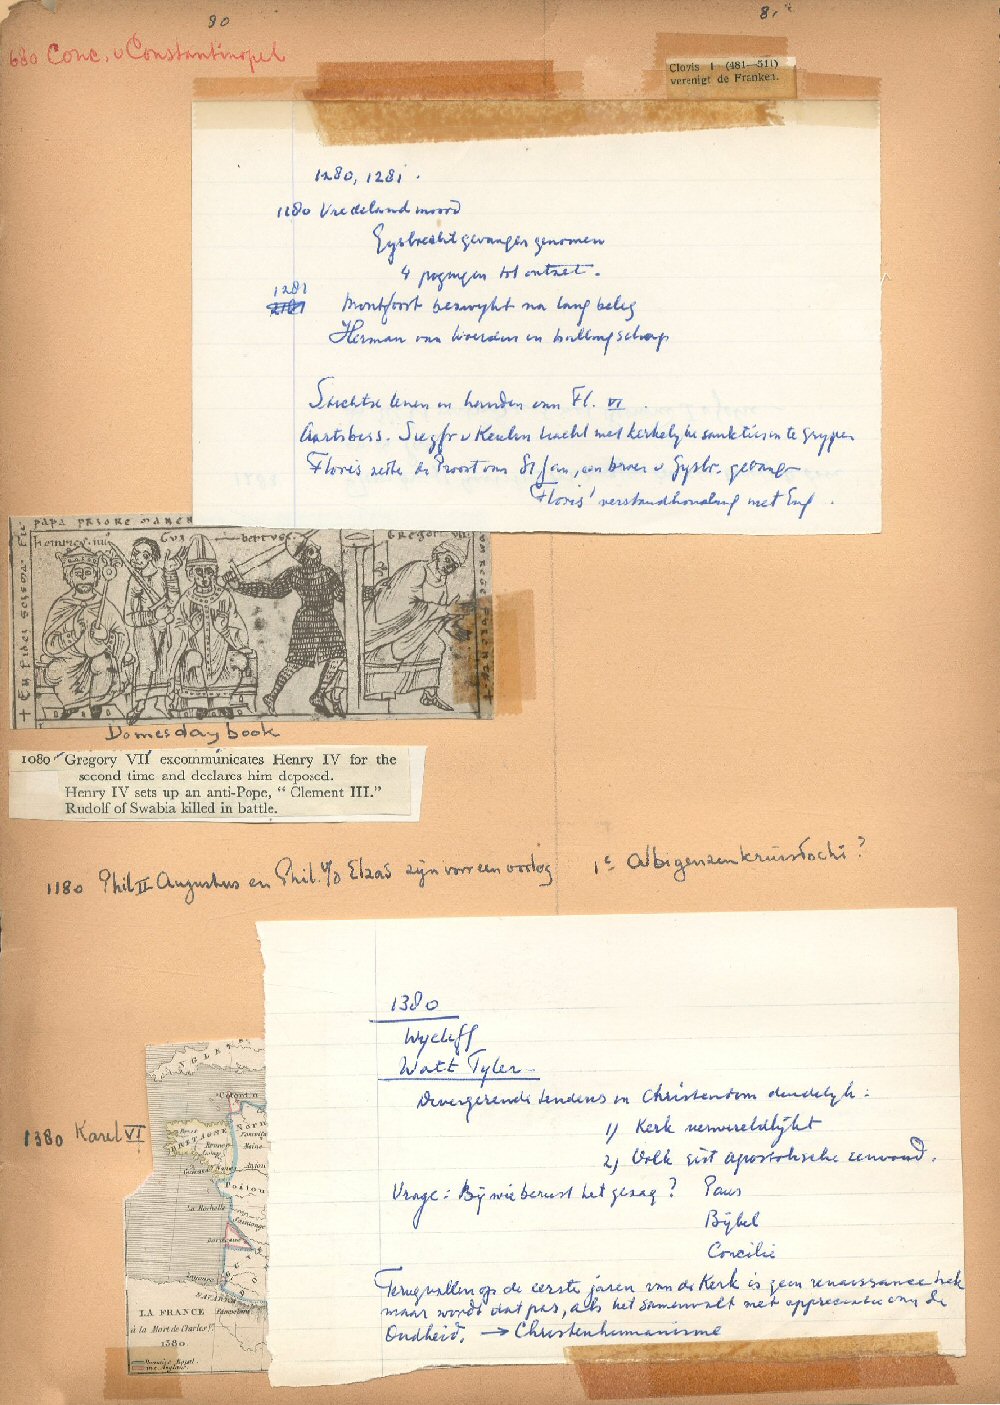 80
81
680 Conc. v Constantinopel
Clovis I (481—511)
verenigt de Franken.
1280, 1281.
1280 Vredelandmoord
Gysbrecht gevangen genomen
4 pogingen tot ontzet.
1281
Montfoort bezwykt na lang beleg
Herman van Woerden in ballingschap
Stichtse lenen in handen van Fl. VI.
Aartsbiss. Siegfr v Keulen tracht met kerkelyke sankties in te grypen
Floris zette de Proost van St Jan, een broer v Gysbr. gevangen
Floris' verstandhouding met Eng.
papa priore
heinricus iiii
Gregori VII
Domesday book
1080 Gregory VII excommunicates Henry IV for the
second time and declares him deposed.
Henry IV sets up an anti-Pope, "Clement III."
Rudolf of Swabia killed in battle.
1180 Phil II Augustus en Phil. v/d Elzas zijn voor een oorlog
1e Albigenzenkruistocht?
1380
Wycliff
Watt Tyler
Divergerende tendens in Christendom duidelyk:
1) Kerk verwereldlijkt
2) Volk eist apostolische eenvoud.
Vrage: Bij wie berust het gezag? Paus
Bijbel
Concilie
1380 Karel VI
Terugvallen op de eerste jaren van de Kerk is geen renaissance trek
maar wordt dat pas, als het samenvalt met appreciatie van de
Oudheid. → Christenhumanisme
BRETAGNE
Poitou
La Rochelle
Bordeaux
NAVARRE
LA FRANCE
à la Mort de Charles V.
1380